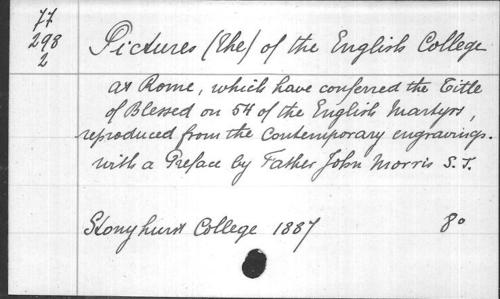 77
298
2
Pictures (The) of the English College
at Rome, which have conferred the Title
of Blessed on 54 of the English Martyrs,
reproduced from the Contemporary engravings.
with a Preface by Father John Morris S.J.
Stonyhurst College 1887 8°